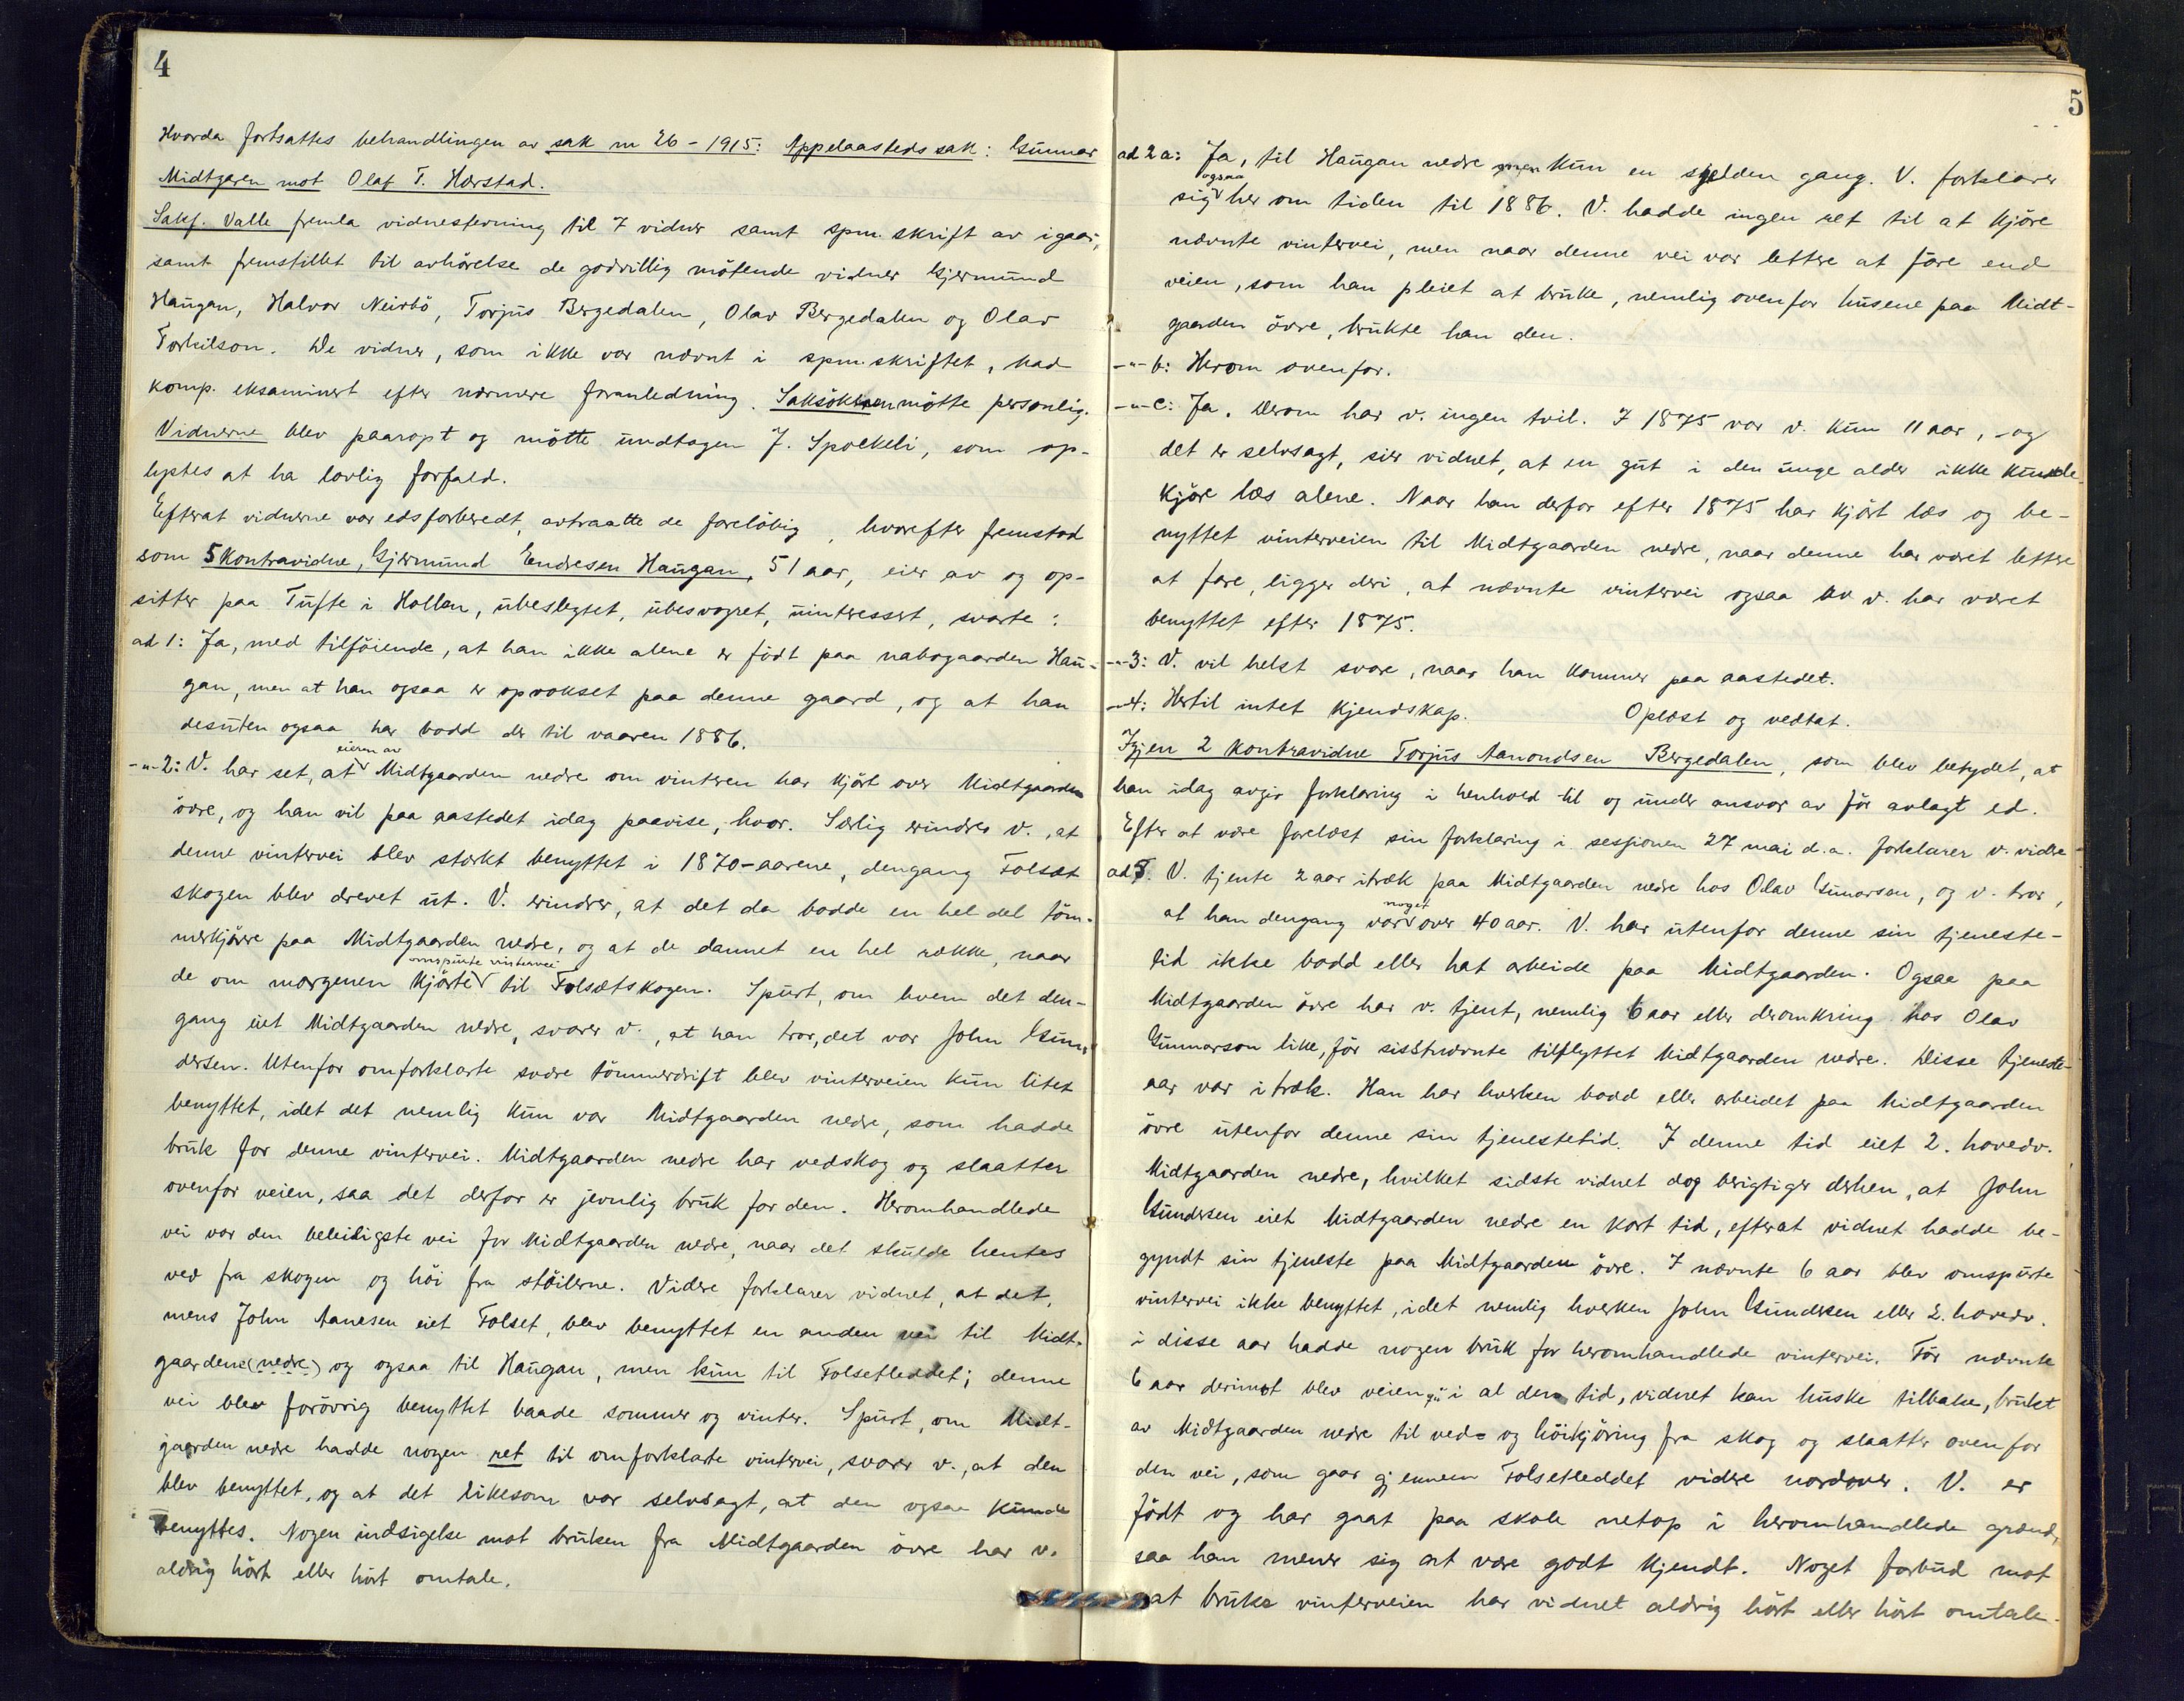 4
Hvorda fortsattes behandlingen av sak nr 26 - 1915: Appelaasteds sak: Gunnar
Midtgaren mot Olaf T. Hærstad.
Sakf. Valle fremla vidnestevning til 7 vidner samt spm. skrift av igaar,
samt fremstillet til avhörelse de godvillig mötende vidner Gjermund
Haugan, Halvor Neirbö, Torjus Bergedalen, Olav Bergedalen og Olav
Torkilson. De vidner, som ikke var nævnt i spm. skriftet, bad
komp. eksaminert efter nærmere foranledning. Saksökeren mötte personlig.
Vidnerne blev paaropt og mötte undtagen J. Spockeli, som op-
lystes at ha lovlig forfald.
Efterat vidnerne var edsforberedt, avtraatte de forelöbig, hvorefter fremstod
som 5 kontravidne, Gjermund Endresen Haugan, 51 aar, eier av og op-
sitter paa Tufte i Hollen, ubeslegtet, ubesvogret, uinteressert, svarte:
ad 1: Ja, med tilföiende, at han ikke alene er födt paa nabogaarden Hau-
gan, men at han ogsaa er opvokset paa denne gaard, og at han
desuten ogsaa har bodd der til vaaren 1886.
eieren av
-"- 2: V. har set, at Midtgaarden nedre om vinteren har kjört over Midtgaarden
övre, og han vil paa aastedet idag paavise, hvor. Særlig erindrer v., at
denne vintervei blev stærkt benyttet i 1870-aarene, dengang Folsæt
skogen blev drevet ut. V. erindrer, at det da bodde en hel del töm-
merkjörere paa Midtgaarden nedre, og at de dannet en hel række, naar
omspurte vintervei
de om morgenen kjörte til Folsætskogen. Spurt, om hvem det den-
gang eiet Midtgaarden nedre, svarer v., at han tror, det var John Gun-
dersen. Utenfor omforklarte svære tömmerdrift blev vinterveien kun litet
benyttet, idet det nemlig kun var Midtgaarden nedre, som hadde
bruk for denne vintervei. Midtgaarden nedre har vedskog og slaatter
ovenfor veien, saa det derfor er jevnlig bruk for den. Heromhandlede
vei var den beleiligste vei for Midtgaarden nedre, naar det skulde hentes
ved fra skogen og höi fra stöilerne. Videre forklarer vidnet, at det,
mens John Aanesen eiet Folset, blev benyttet en anden vei til Midt-
gaardene (nedre) og ogsaa til Haugan, men kun til Folsetleddet; denne
vei blev forövrig benyttet baade sommer og vinter. Spurt, om Midt-
gaarden nedre hadde nogen ret til omforklarte vintervei, svarer v., at den
blev benyttet, og at det likesom var selvsagt, at den ogsaa kunde
benyttes. Nogen indsigelse mot bruken fra Midtgaarden övre har v.
aldrig hört eller hört omtale.
5
ad 2 a: Ja, til Haugan nedre men kun en sjelden gang. V. forklarer
ogsaa
sig her om tiden til 1886. V. hadde ingen ret til at kjöre
nævnte vintervei, men naar denne vei var lettere at fare end
veien, som han pleiet at bruke, nemlig ovenfor husene paa Midt-
gaarden övre, brukte han den.
-"- b: Herom ovenfor.
-"- c: Ja. Derom har v. ingen tvil. I 1875 var v. kun 11 aar, - og
det er selvsagt, sier vidnet, at en gut i den unge alder ikke kunde
kjöre læs alene. Naar han derfor efter 1875 har kjört læs og be-
nyttet vinterveien til Midtgaarden nedre, naar denne har været lettere
at fare, ligger deri, at nævnte vintervei ogsaa av v. har været
benyttet efter 1875.
-"- 3: V. vil helst svare, naar han kommer paa aastedet.
-"- 4: Hertil intet kjendskap. Oplæst og vedtat.
Igjen 2 kontravidne Torjus Aanondsen Bergedalen, som blev betydet, at
han idag avgir forklaring i henhold til og under ansvar av för avlagt ed.
Efter at være forelæst sin forklaring i sessionen 27 mai d.a. forklarer v. videre
ad 5. V. tjente 2 aar itræk paa Midtgaarden nedre hos Olav Gunarson, og v. tror,
noget
at han dengang var over 40 aar. V. har utenfor denne sin tjeneste-
tid ikke bodd eller hat arbeide paa Midtgaarden. Ogsaa paa
Midtgaarden övre har v. tjent, nemlig 6 aar eller deromkring hos Olav
Gunnarson like, för sisstnævnte tilflyttet Midtgaarden nedre. Disse tjeneste-
aar var itræk. Han har hverken bodd eller arbeidet paa Midtgaarden
övre utenfor denne sin tjenestetid. I denne tid eiet 2. hovedv.
Midtgaarden nedre, hvilket sidste vidnet dog berigtiger derhen, at John
Gundersen eiet Midtgaarden nedre en kort tid, efterat vidnet hadde be-
gyndt sin tjeneste paa Midtgaarden övre. I nævnte 6 aar blev omspurte
vintervei ikke benyttet, idet nemlig hverken John Gundersen eller 2. hovedv.
i disse aar hadde nogen bruk for heromhandlede vintervei. För nævnte
6 aar derimot blev veien i al den tid, vidnet kan huske tilbake, brukt
av Midtgaarden nedre til ved- og höikjöring fra skog og slaatter ovenfor
den vei, som gaar gjennem Folsetleddet videre nordover. V. er
födt og har gaat paa skole netop i heromhandlede grænd,
saa han mener sig at være godt kjendt. Noget forbud mot
at bruke vinterveien har vidnet aldrig hört eller hört omtale.